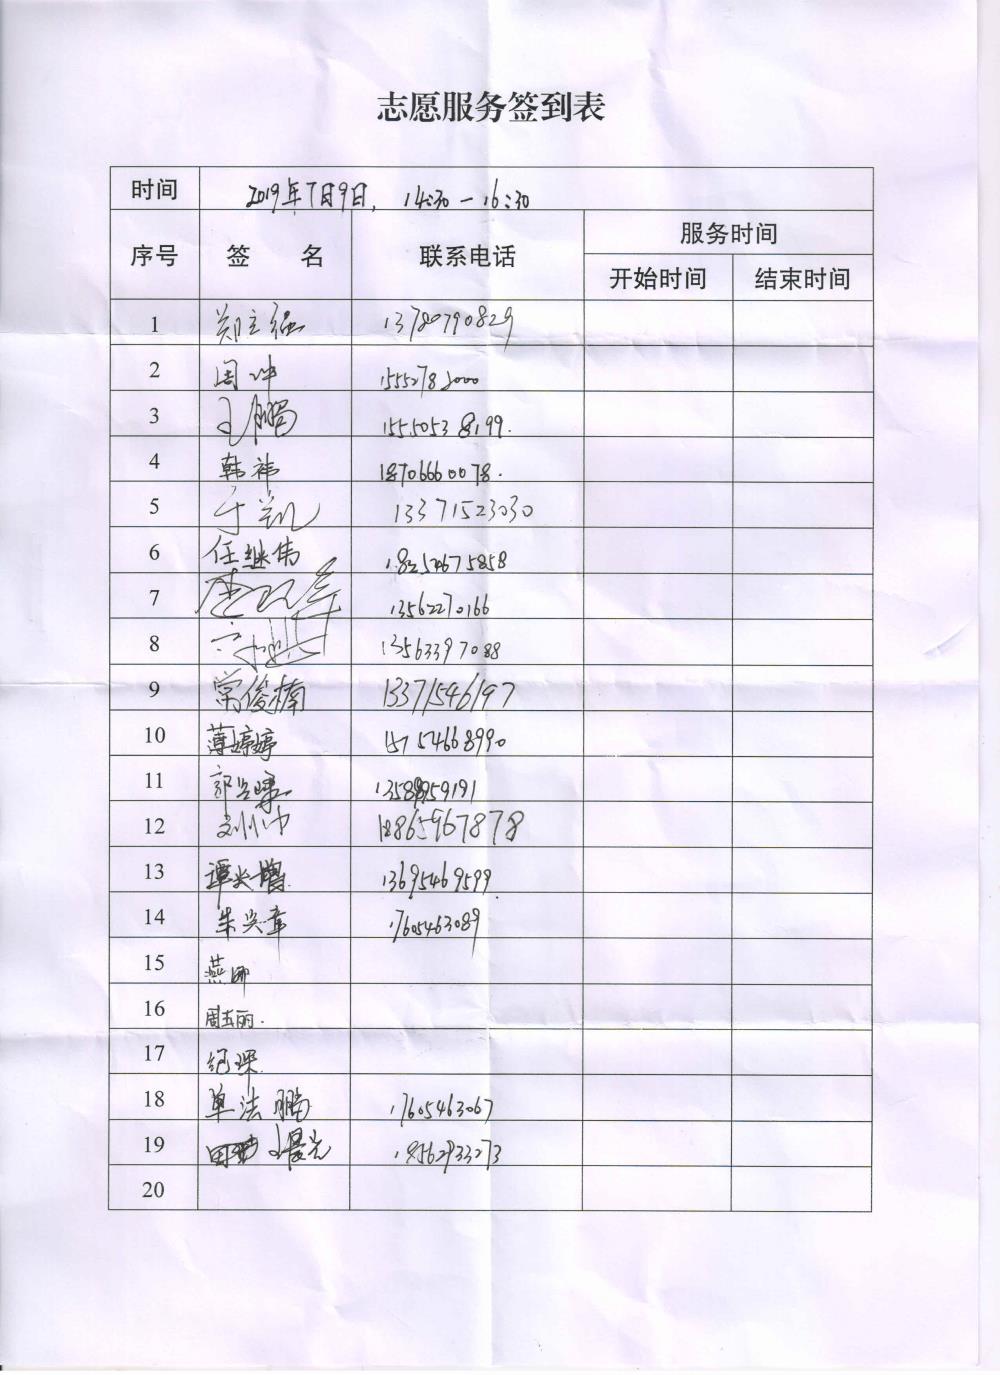 志愿服务签到表
时间 2019年7月9日, 14:30-16:30
序号 签 名 联系电话 服务时间
开始时间 结束时间
1 郑立强 13780790829
2 周坤 15552782000
3 王鹏 15550538199.
4 韩祎 18706660078.
5 于凯 13371523030
6 任继伟 18254675858
7 13562270166
8 13563397088
9 常俊楠 13371546197
10 薄婷婷 15754668990
11 郭
12 刘帅 18865967878
13 谭兴增 13695469599
14 朱兴章 17605463089
15 燕娜
16 周玉丽.
17 纪琛
18 单法鹏 17605463067
19 王晨光
20